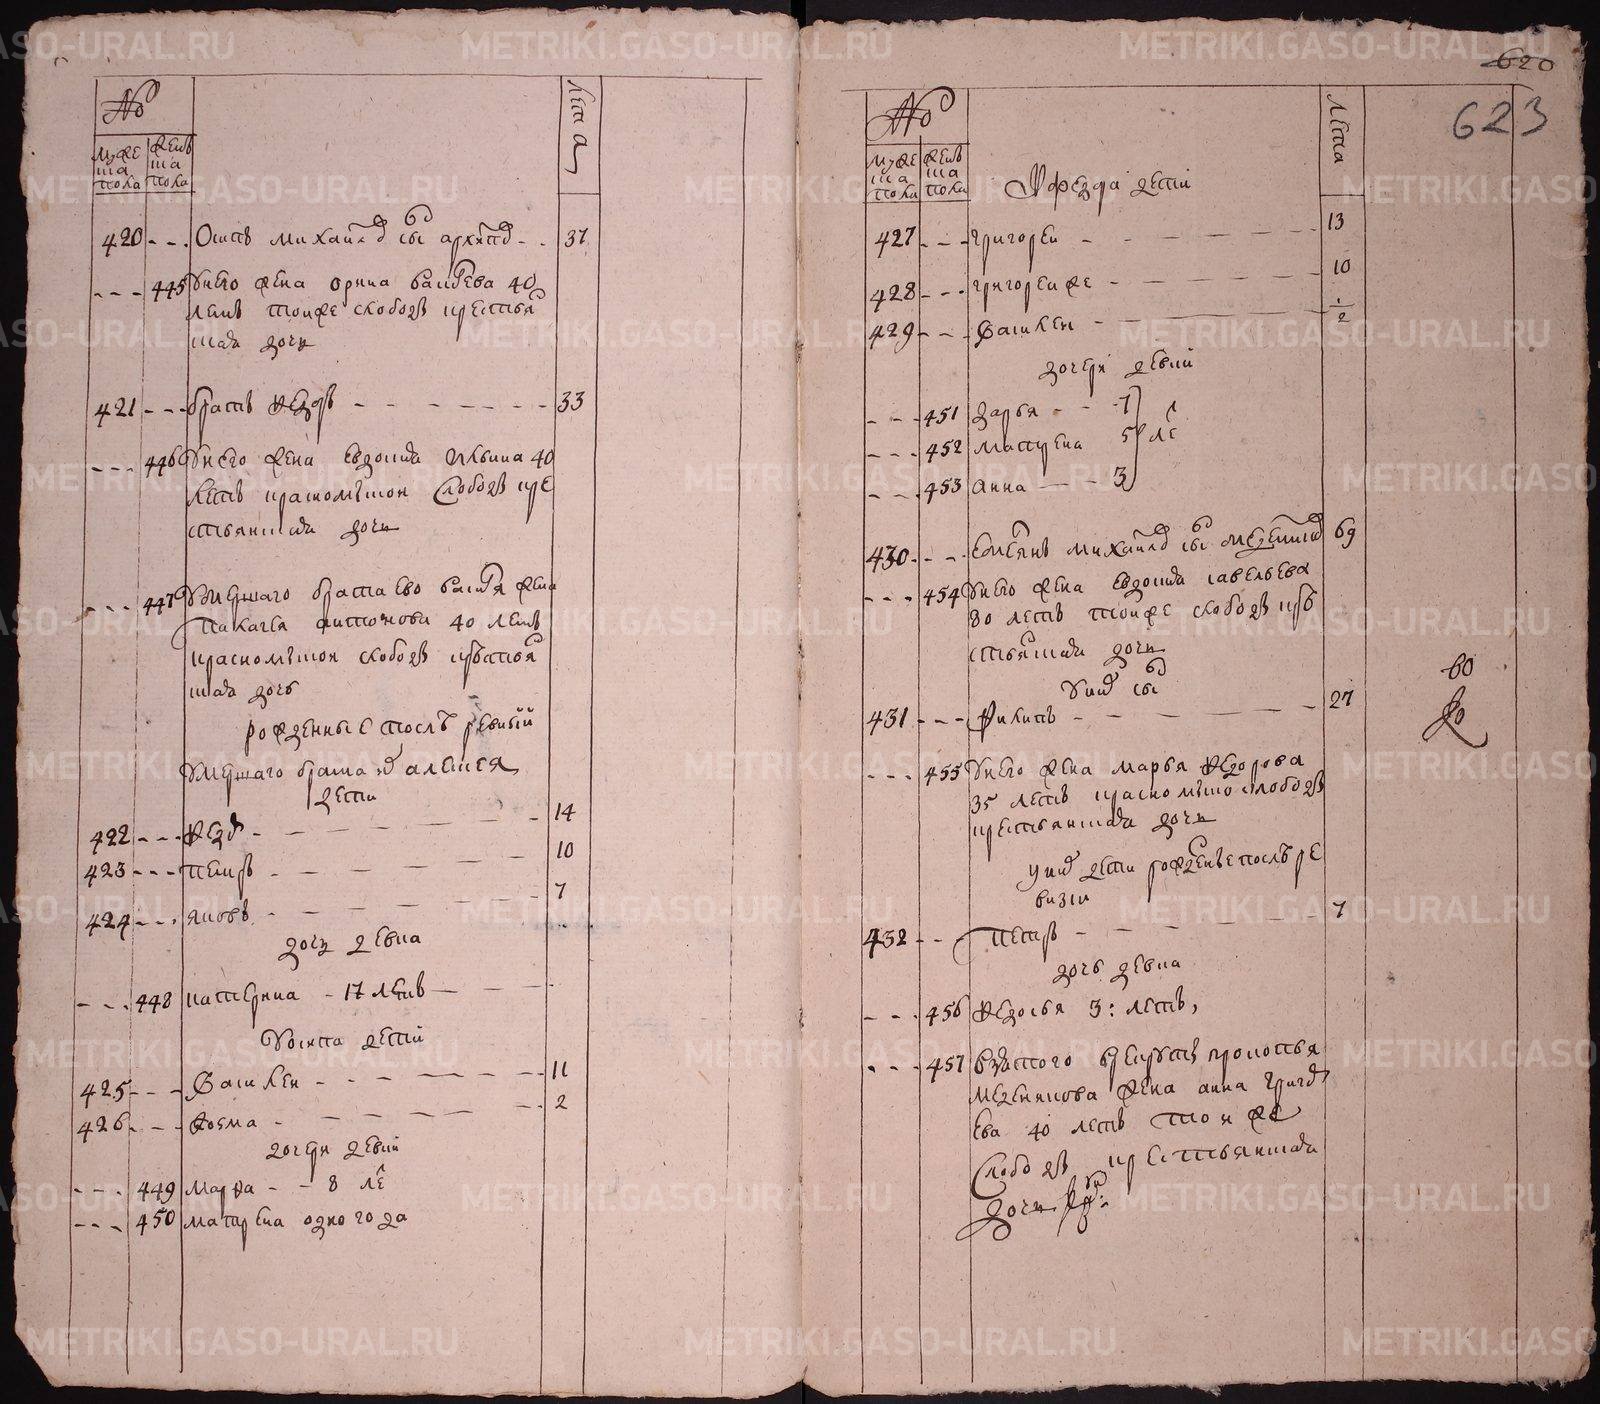 №
Лета
муже
ска
пола
женъ
ска
пола
420 - - - Осипъ михаиловъ снъ архиповъ - - 37
- - - 445 У него жена орина васильева 40
летъ тоиже слободы крестьян
ская дочь
421 - - - братъ Федоръ - - - - - - - 33
- - - 446 У него жена евдокия ильина 40
летъ краснояръской слободы кре
стьянская дочь
- - - 447 Умершаго брата ево василья жена
антонова 40 летъ
слободы крестьян
ская дочь
рожденные послѣ ревизии
Умершаго брата алексея
дети
422 - - - Федоръ - - - - - - 14
423 - - - петръ - - - - - 10
424 - - - яковъ - - - - - - 7
дочь девка
- - - 448 катерина - 17 летъ - - -
У осипа дети
425 - - - Василеи - - - - - - 11
426 - - - Козма - - - - - 2
дочери девки
- - - 449 марфа - - 8 ле
- - - 450 матрена одного года
620
623
№
Лета
муже
ска
пола
женъ
ска
пола
У Федора дети
427 - - - григореи - - - - - - 13
428 - - - григореиже - - - - - - 10
429 - - - Василеи - - - - - - 1/2
дочери девки
- - - 451 дарья - - 7
- - - 452 матрена 5 ле
- - - 453 анна - - 3
430 - - - Емельянъ михаиловъ снъ мезенцовъ 69
- - - 454 У него жена евдокия савельева
80 летъ тоиже слободы кре
стьянская дочь
У них снъ
431 - - - Филипъ - - - - - - 27
во
- - - 455 У него жена марья Федорова
35 летъ слободы
крестьянская дочь
У них дети рожденые послѣ ре
визии
432 - - - петръ - - - - - - 7
дочь девка
- - - 456 Федосья 3: летъ,
- - - 457 взятого врекруты прокопья
мезенцова жена анна григорь
ева 40 летъ тои же
слободы крестьянская
дочь